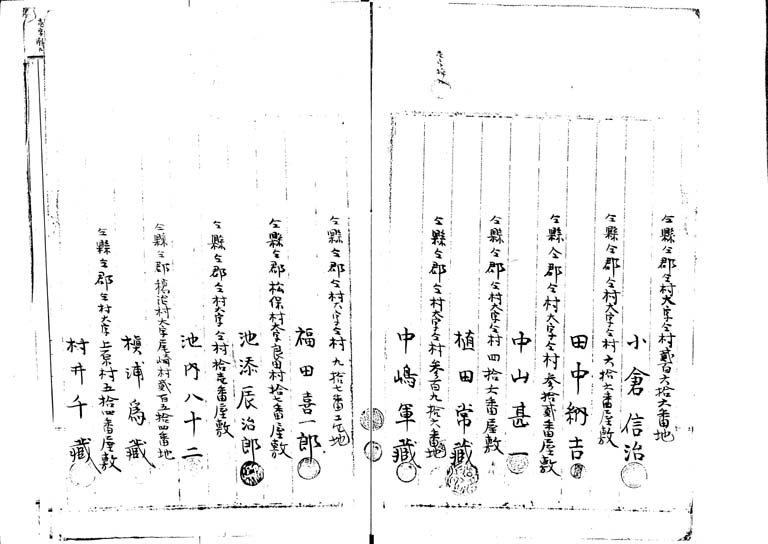 仝縣仝郡仝村大字仝村貳百六拾六番地
小倉信治
仝縣仝郡仝村大字仝村六拾六番屋敷
田中納吉
仝縣仝郡仝村大字仝村参拾貳番屋敷
中山甚一
仝縣仝郡仝村大字仝村四拾六番屋敷
植田常藏
仝縣仝郡仝村大字仝村参百九拾六番地
中嶋軍藏
仝縣仝郡仝村大字仝村九拾七番地
福田喜一郎
仝縣仝郡松保村大字良田村拾七番屋敷
池添辰治郎
仝縣仝郡仝村大字仝村拾壱番屋敷
池内八十二
仝縣仝郡 村大字尾崎村貳百五拾四番地
槇浦為藏
仝縣仝郡仝村大字上原村五拾四番屋敷
村井千藏